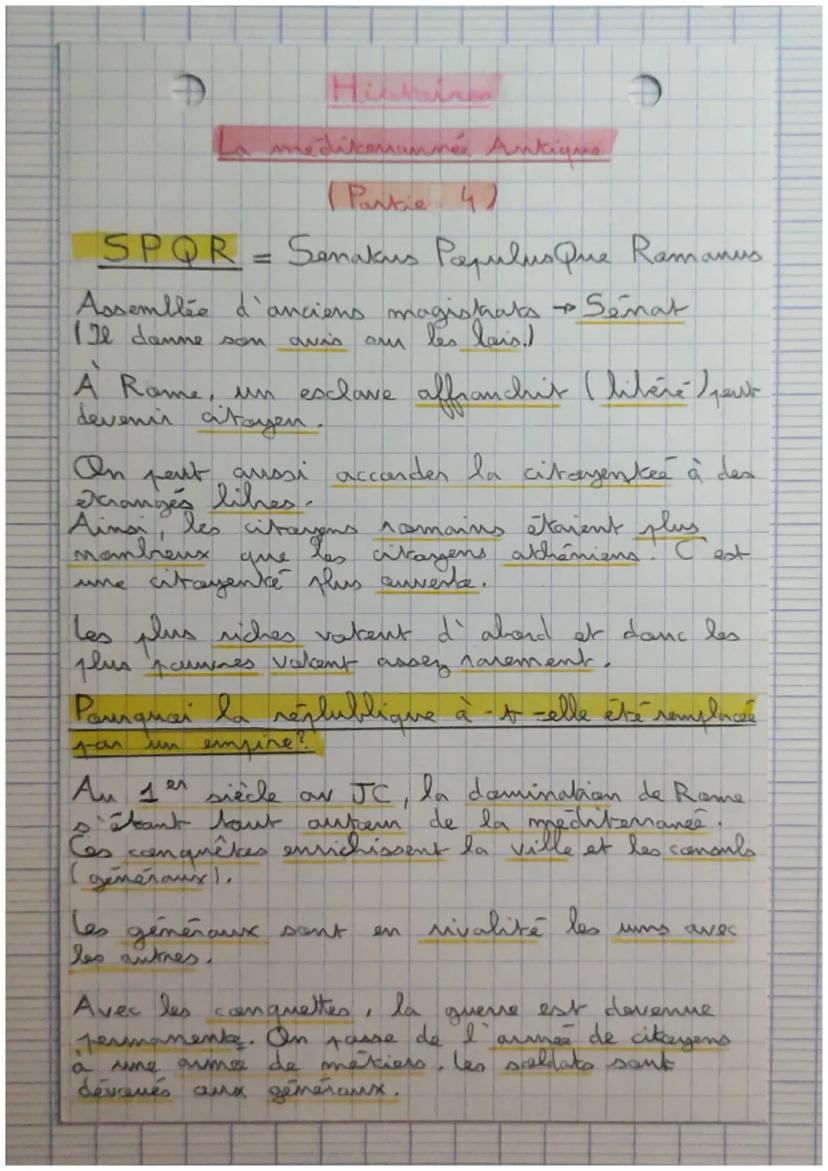 Histoires
La méditerrannée Antique
(Partie 4)
SPQR = Senatus PopulusQue Romanus
Assemblée d'anciens magistrats → Sénat
(Il donne son avis sur les lois.)
À Rome, un esclave affranchit (libéré) peut
devenir citoyen.
On peut aussi accorder la citoyenteé à des
étrangés libres.
Ainsi, les citoyens romains étaient plus
nombreux que les citoyens athéniens. C'est
une citoyenté plus ouverte.
Les plus riches votent d'abord et donc les
plus pauvres votent assez rarement.
Pourquoi la réplublique à-t-elle été remplacée
par un empire?
Au 1er siècle av JC, la domination de Rome
s'étant tout autour de la méditerraneé.
Ces conquêtes enrichissent la ville et les consuls
(généraux).
Les généraux sont en rivalité les uns avec
les autres.
Avec les conquettes, la guerre est devenue
permanente. On passe de l'armeé de citoyens
à une armée de métiers. Les soldats sont
dévoués aux généraux.